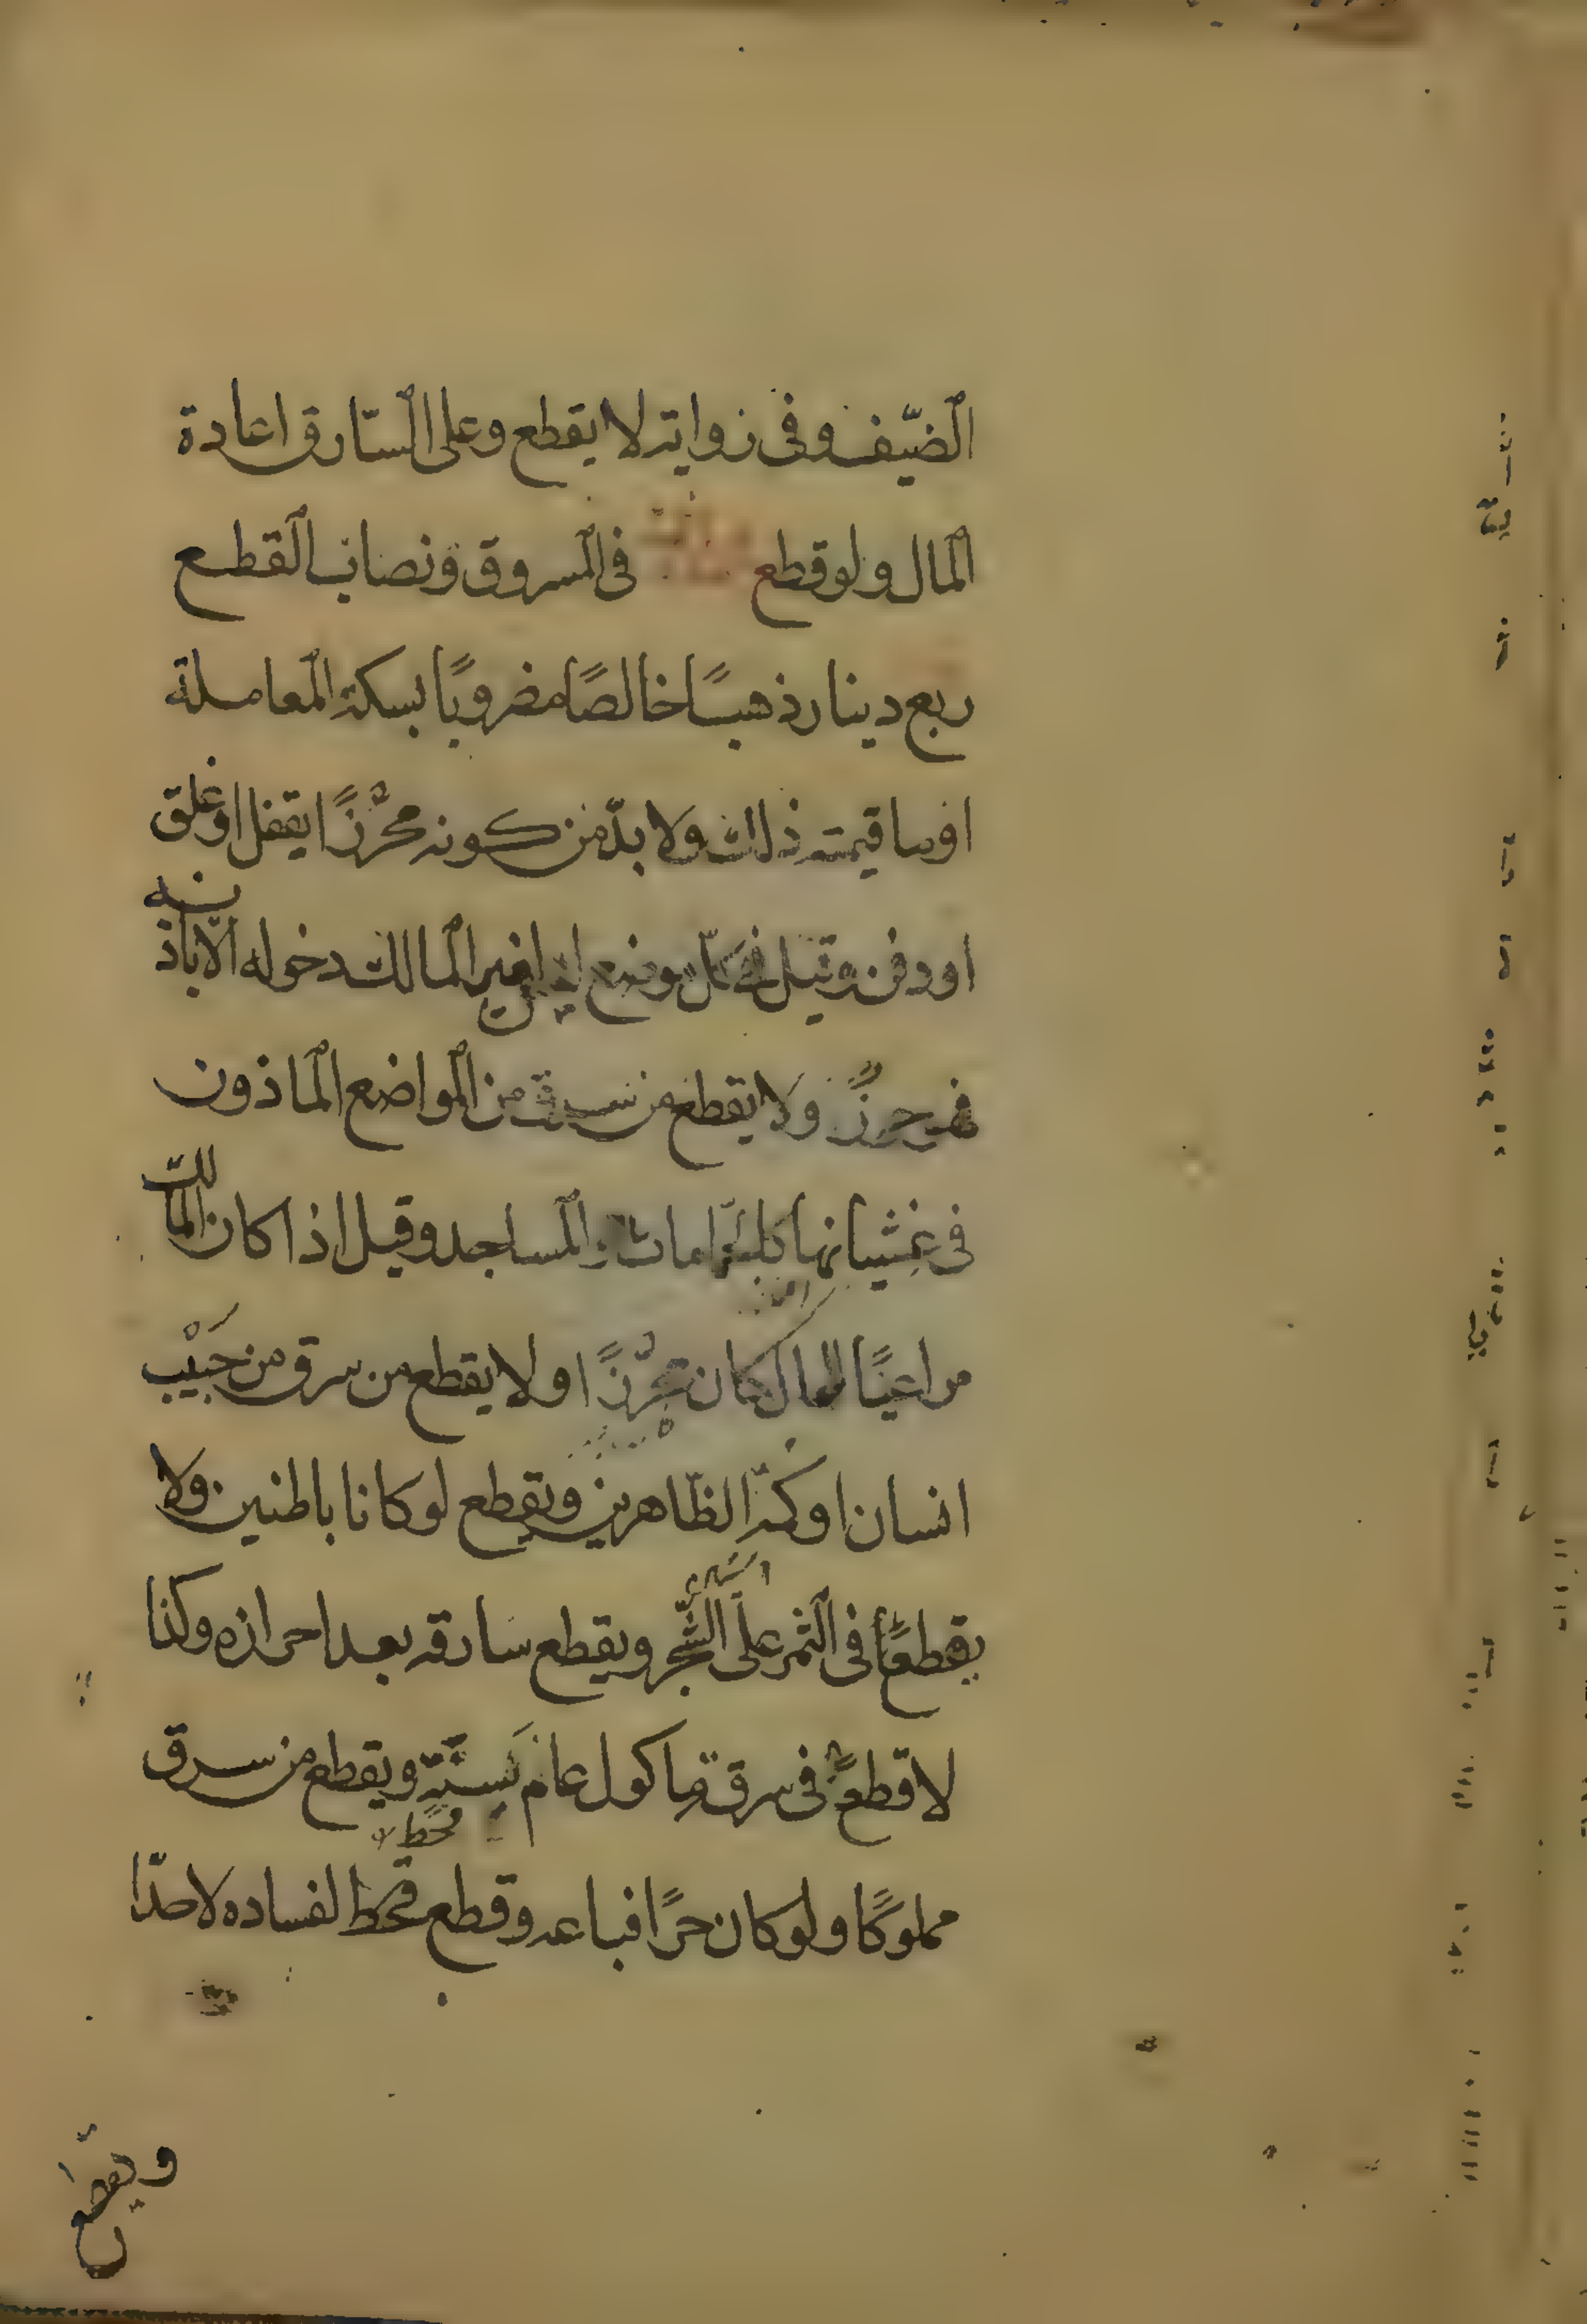 الضيف وفى رواية لا يقطع وعلى السارق اعادة
المال ولو قطع فى المسروق ونصاب القطع
ربع دينار ذهبًا خالصًا مضروبًا بسكة المعاملة
او ما قيمته ذلك ولا بدّ من كونه محرزًا بقفل او غلق
او دفن وقيل كل موضع ليس لغير المالك دخوله الّا باذنه
فهو حرزٌ ولا يقطع من سرق من المواضع الماذون
فى غشيانها كالحمّامات والمساجد وقيل اذا كان المالك
مراعيًا للمال كان محرزًا ولا يقطع من سرق من جَيْب
انسان او كمّه الظاهرين ويقطع لو كانا باطنين ولا
يقطع فى الثمر على الشجر ويقطع سارقه بعد احرازه وكذا
لا قطع فى سرقة ماكول عام سنة ويقطع من سرق
قحط
مملوكًا ولو كان حرًا فباعه قطع لفساده لا حدّا
ويقطع